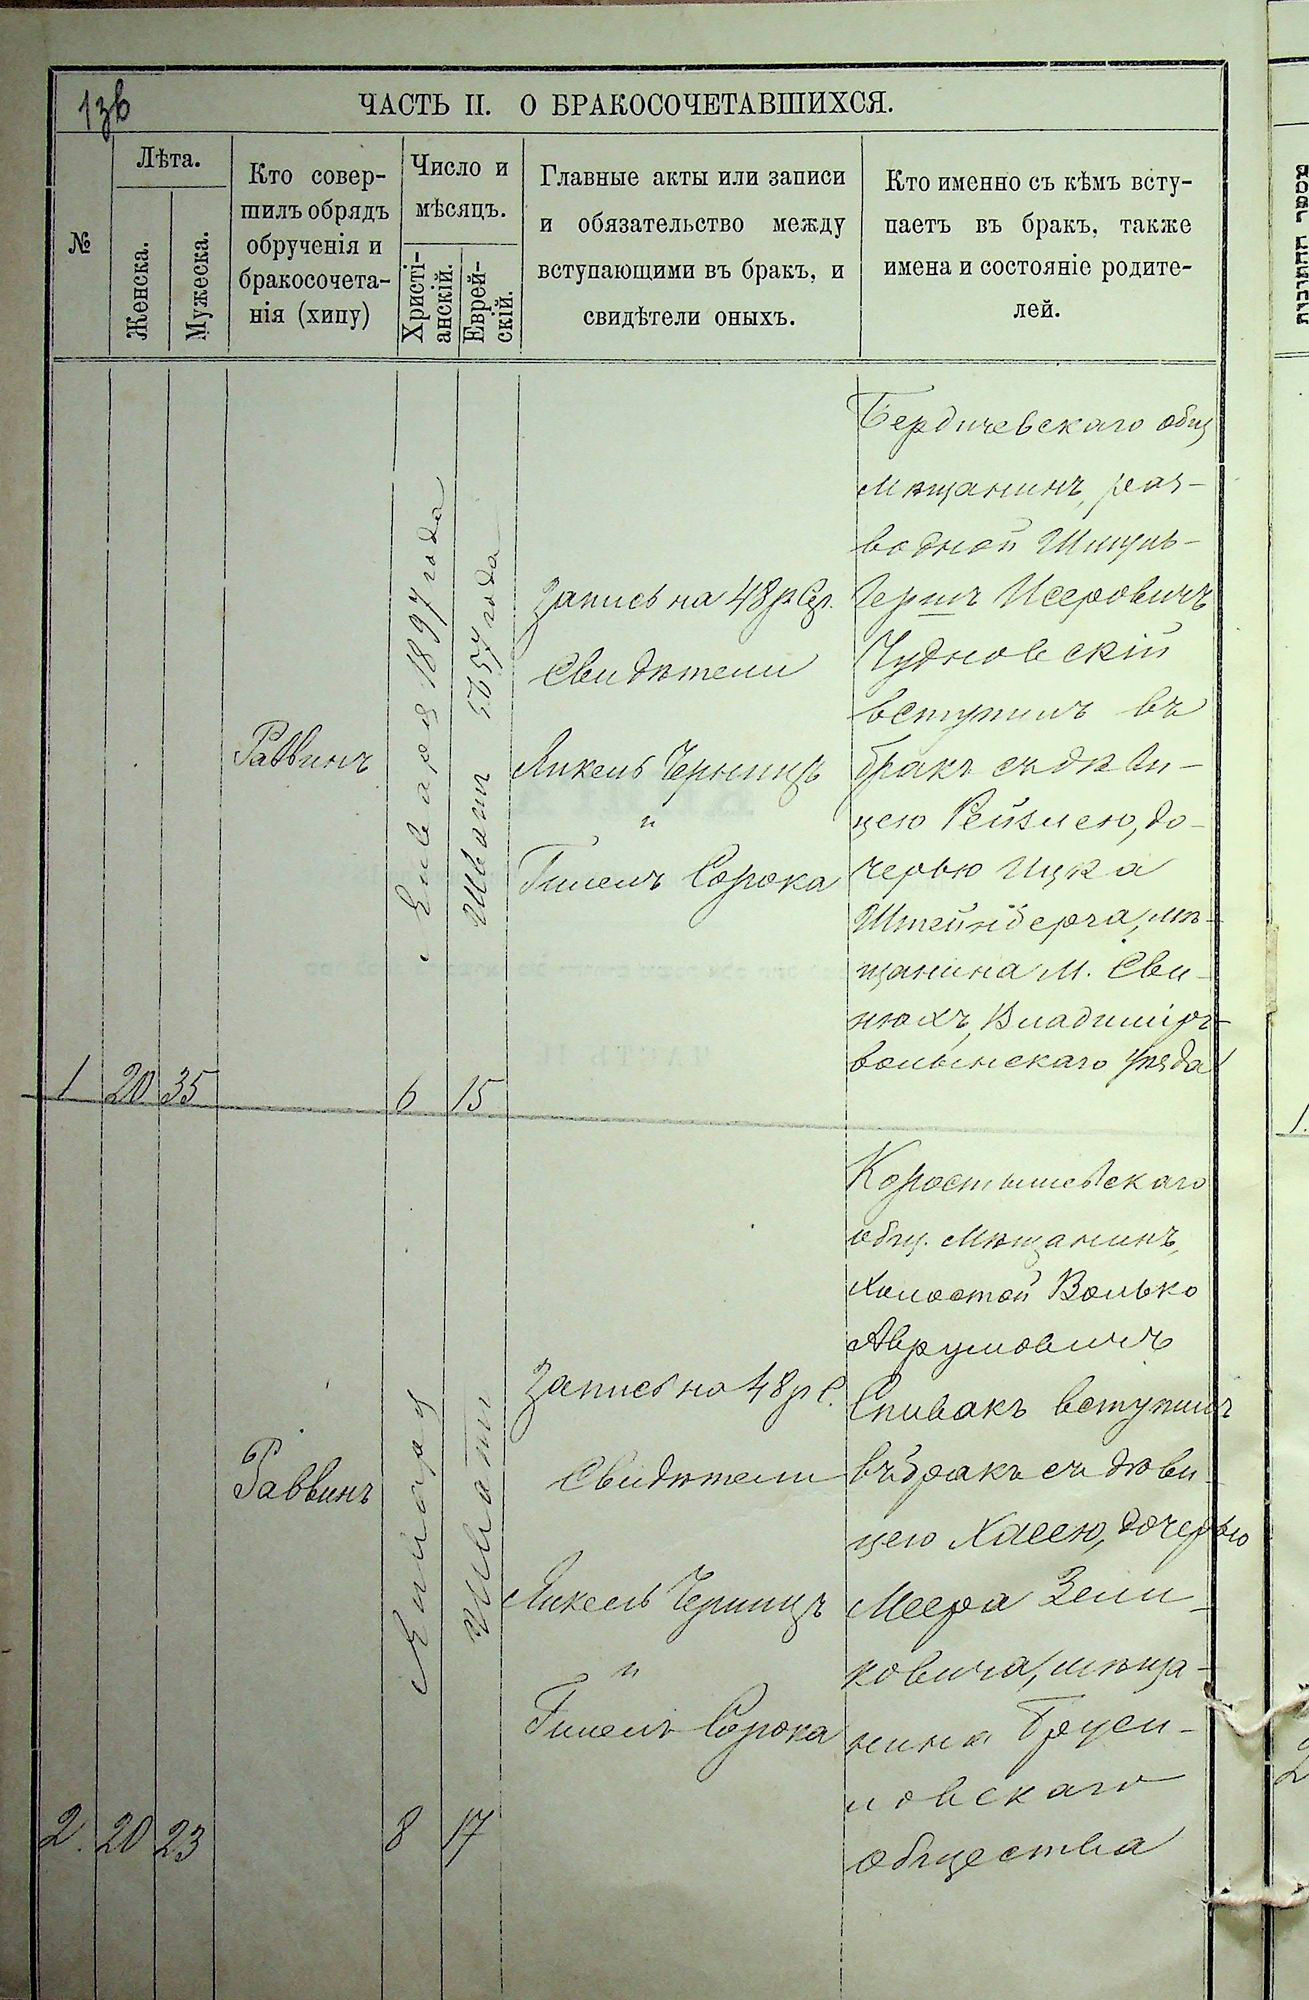 136
ЧАСТЬ II. О БРАКОСОЧЕТАВШИХСЯ.
№
Лѣта.
Женска.
Мужеска.
Кто совер-
шилъ обрядъ
обрученія и
бракосочета-
нія (хипу)
Число и
мѣсяцъ.
Христі-
анскій.
Еврей-
скій.
Главные акты или записи
и обязательство между
вступающими въ бракъ, и
свидѣтели оныхъ.
Кто именно съ кѣмъ всту-
паетъ въ бракъ, также
имена и состояніе родите-
лей.
1
20
35
Раввинъ
6
Января 1897 года
15
Шватъ 5657 года
Запись на 48 р
Свидѣтели
Янкель Чернинъ
и
Гилель Сорока
Бердичевскаго общ
Мѣщанинъ, раз-
водной Шмуль-
Герш Исеровичъ
Чудновскій
вступилъ въ
бракъ съ дѣви-
цею Рейзлею, до-
черью Ицка
Штейнберга, мѣ-
щанина м. Сви-
нюхъ, Владимір-
волынскаго уѣзда
2.
20
23
Раввинъ
8
Января
17
Шватъ
Запись на 48 р С.
Свидѣтели
Янкель Чернинъ
и
Гилель Сорока
Коростышевскаго
общ. Мѣщанинъ,
холостой Волько
Аврумовичъ
Спивакъ вступилъ
въ бракъ съ дѣви-
цею Хасею, дочерью
Меера Зели-
ковича, мѣща-
нина Бруси-
ловскаго
общества